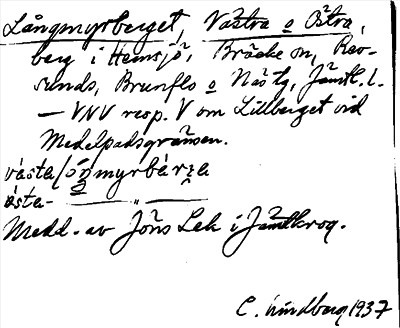 Långmyrberget, Västra o Östra,
berg i Hemsjö, Bräcke sn, Rev-
sunds, Brunflo o Näs tg, Jämtl. l.
— VNV resp. V om Lillberget vid
Medelpadsgränsen.
västa/
östa- — „ —
Medd. av Jöns Lek i Jämtkrog.
C. Lindberg 1937